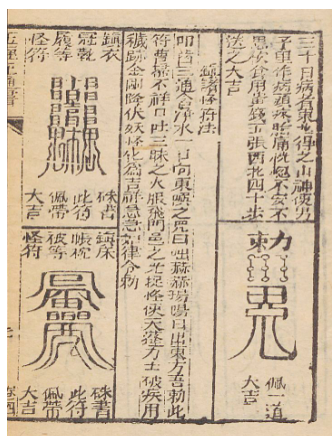 三十日病者東北得之山神使男
子甲作病頭疼脹痛恍惚不安不
思飲食用黃錢五張西北四十步
送之大吉
佩一道
大吉
鎮諸怪符法
叩齒三通含淨水一口向東噀之咒曰赫赫陽陽日出東方吾勅此
符普掃不祥口吐三昧之火服飛門邑之光捉怪使天蓬力士破疾用
穢跡金剛降伏妖怪化為吉祥急急如律令勅
鎮衣
冠靴
履等
怪符
硃書
此符
佩帶
大吉
鎮床
帳
被等
怪符
硃書
此符
佩帶
大吉